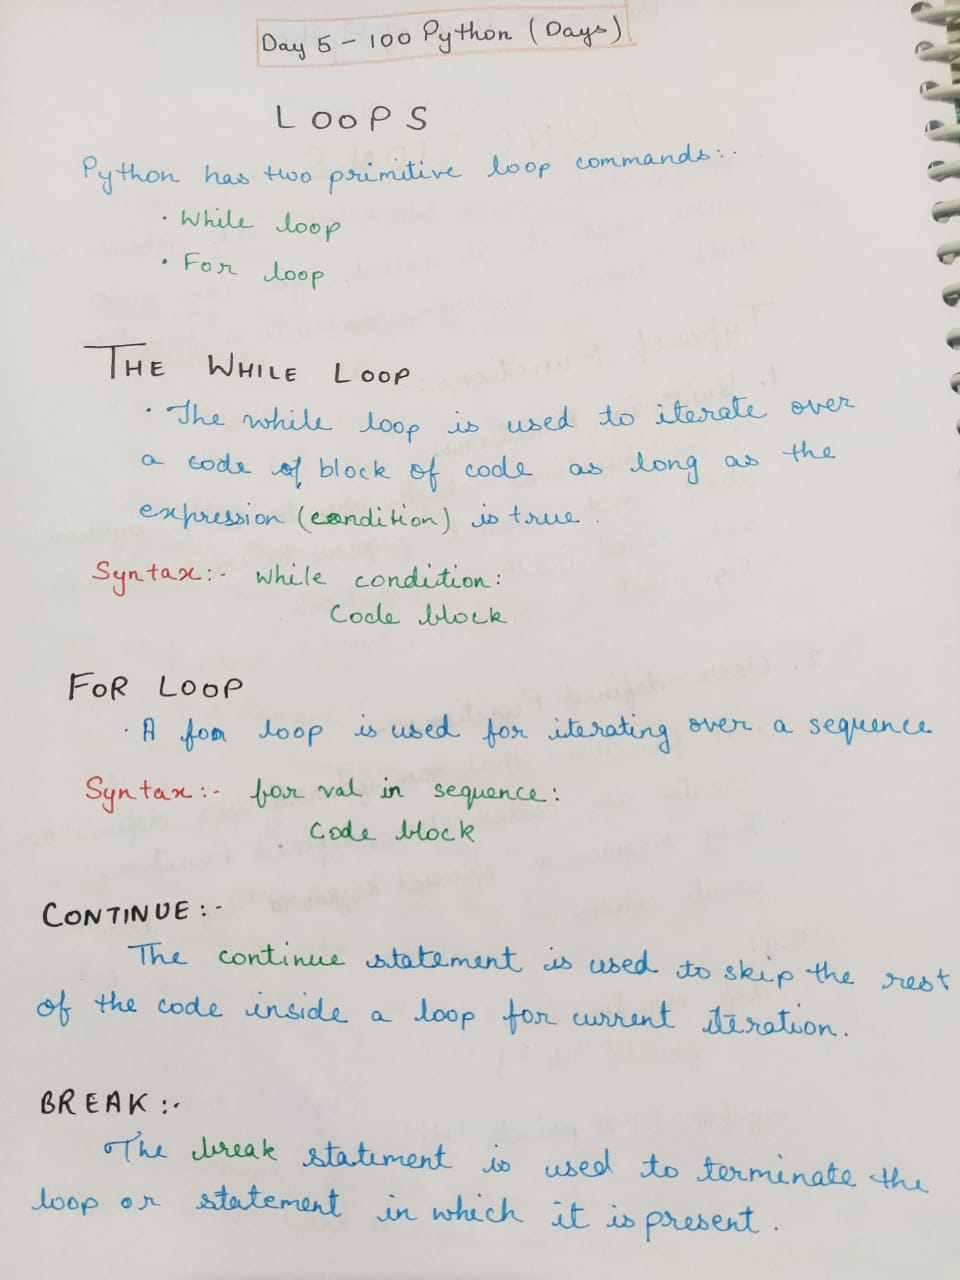 Day 5 - 100 Python (Days)
LOOPS
Python has two primitive loop commands:-
· While loop
· For loop
THE WHILE LOOP
· The while loop is used to iterate over
a code of block of code as long as the
expression (condition) is true.
Syntax:- while condition:
Code block
FOR LOOP
· A for loop is used for iterating over a sequence
Syntax:- for val in sequence:
Code block
CONTINUE:-
The continue statement is used to skip the rest
of the code inside a loop for current iteration.
BREAK:-
The break statement is used to terminate the
loop or statement in which it is present.